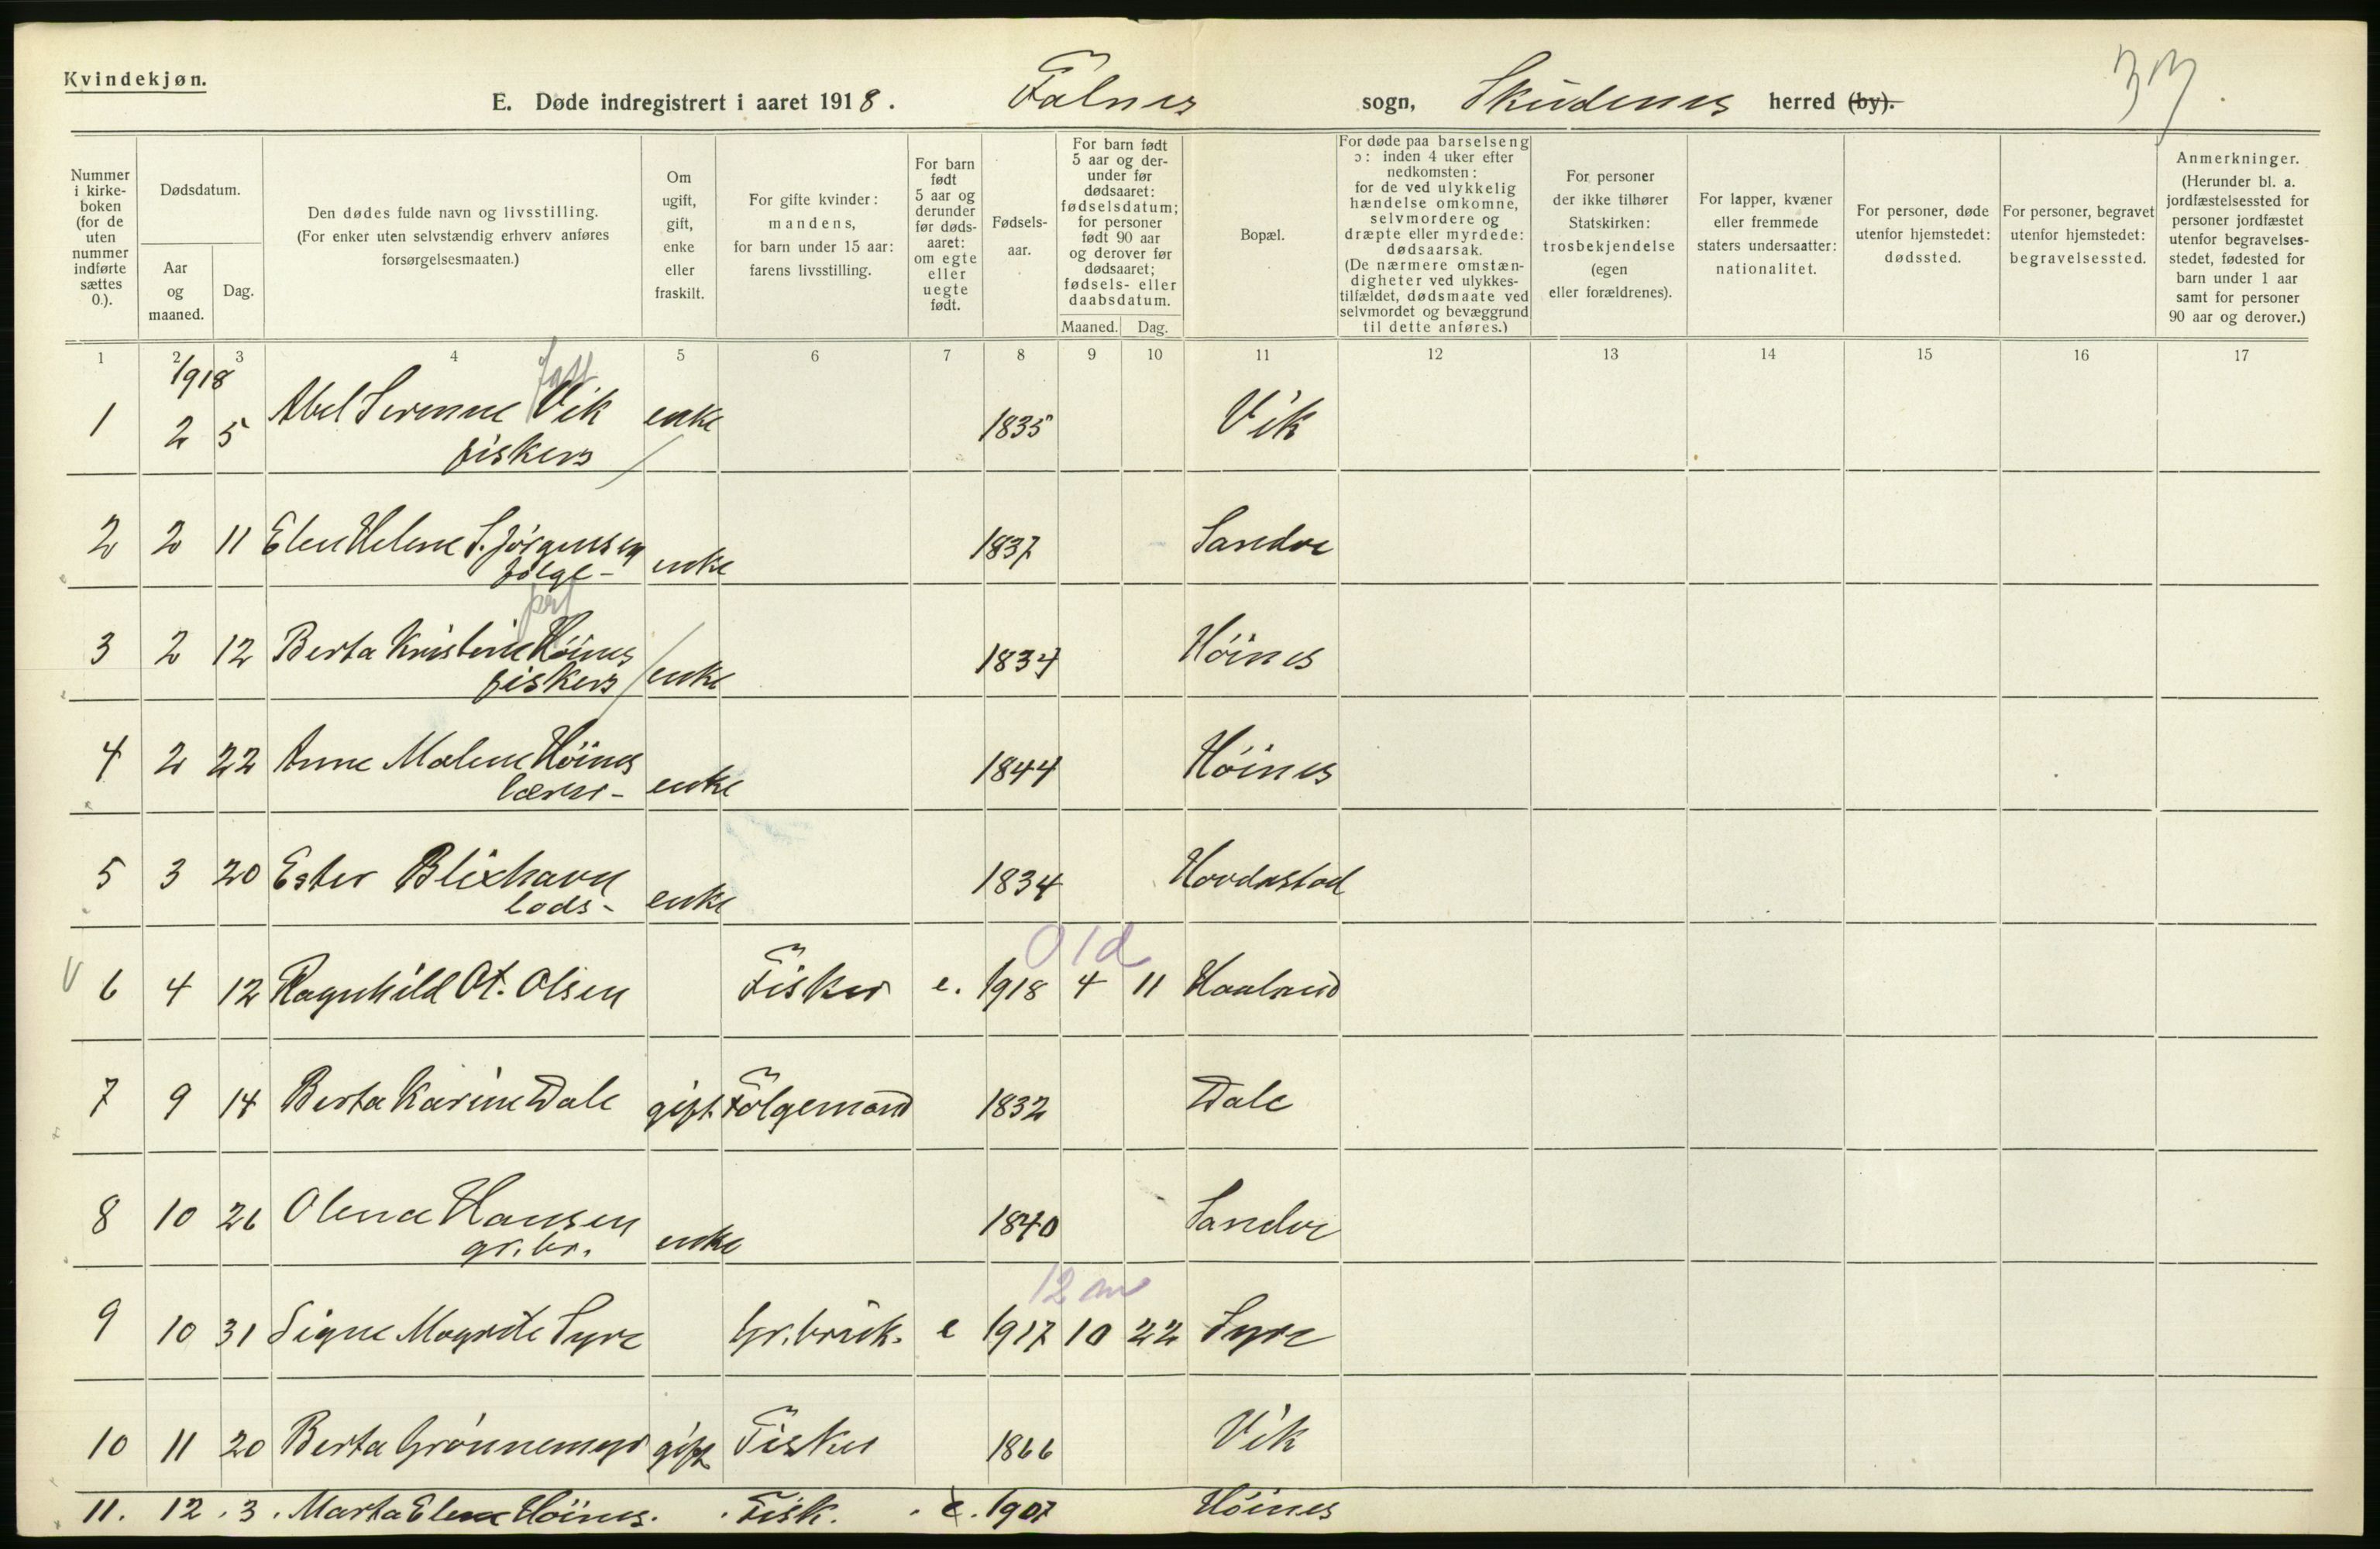 Kvindekjøn.
E. Døde indregistrert i aaret 1918. Falnes sogn, Skudenes herred (by). 33
Nummer i kirke-boken (for de uten nummer indførte sættes 0.).
Dødsdatum.
Aar og maaned.
Dag.
Den dødes fulde navn og livsstilling. (For enker uten selvstændig erhverv anføres forsørgelsesmaaten.)
Om ugift, gift, enke eller fraskilt.
For gifte kvinder: mandens, for barn under 15 aar: farens livsstilling.
For barn født 5 aar og derunder før døds-aaret: om egte eller uegte født.
Fødsels-aar.
For barn født 5 aar og der-under før dødsaaret: fødselsdatum; for personer født 90 aar og derover før dødsaaret; fødsels- eller daabsdatum.
Maaned. Dag.
Bopæl.
For døde paa barselseng ɔ: inden 4 uker efter nedkomsten: for de ved ulykkelig hændelse omkomne, selvmordere og dræpte eller myrdede: dødsaarsak. (De nærmere omstæn-digheter ved ulykkes-tilfældet, dødsmaate ved selvmordet og bevæggrund til dette anføres.)
For personer der ikke tilhører Statskirken: trosbekjendelse (egen eller forældrenes).
For lapper, kvæner eller fremmede staters undersaatter: nationalitet.
For personer, døde utenfor hjemstedet: dødssted.
For personer, begravet utenfor hjemstedet: begravelsessted.
Anmerkninger. (Herunder bl. a. jordfæstelsessted for personer jordfæstet utenfor begravelses-stedet, fødested for barn under 1 aar samt for personer 90 aar og derover.)
1 2 3 4 5 6 7 8 9 10 11 12 13 14 15 16 17
1918
1 2 5 Abel Serenne Vik enke 1835 Vik
fiskers
2 2 11 Elen Helene S. Jørgensen enke 1837 Sandve
følge-
3 2 12 Berta Kristine Høines enke 1834 Høines
fiskers
4 2 22 Anne Malene Høines enke 1844 Høines
lærer-
5 3 20 Ester Blixhavn enke 1834 Hovdastad
lods-
0 1 d
6 4 12 Ragnhild Ot. Olsen Fisker e. 1918 4 11 Haaland
7 9 14 Berta Karine Dale gift Følgemand 1832 Dale
8 10 26 Olena Hansen enke 1840 Sandve
gr.br.
12 m
9 10 31 Signe Magrete Syre Gr.bruk. e 1917 10 22 Syre
10 11 20 Berta Grønnemyr gift Fisker 1866 Vik
11. 12. 3. Marta Elene Høines. Fisk. e. 1907 Høines